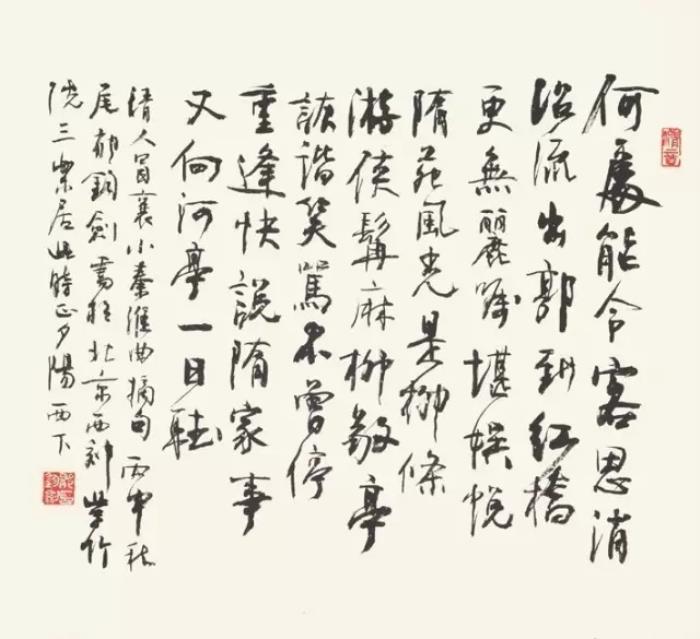 何處能令客思消
沿流出郭到紅橋
更無麗矚堪娱悅
隋苑風光是柳條
游俠髯麻柳敬亭
詼諧笑罵不曾停
重逢快說隋家事
又向河亭一日聽
清人冒襄小秦淮曲摘句 丙申秋
尾郁鈞劍書於北京西郊紫竹
院三樂居此時正夕陽西下